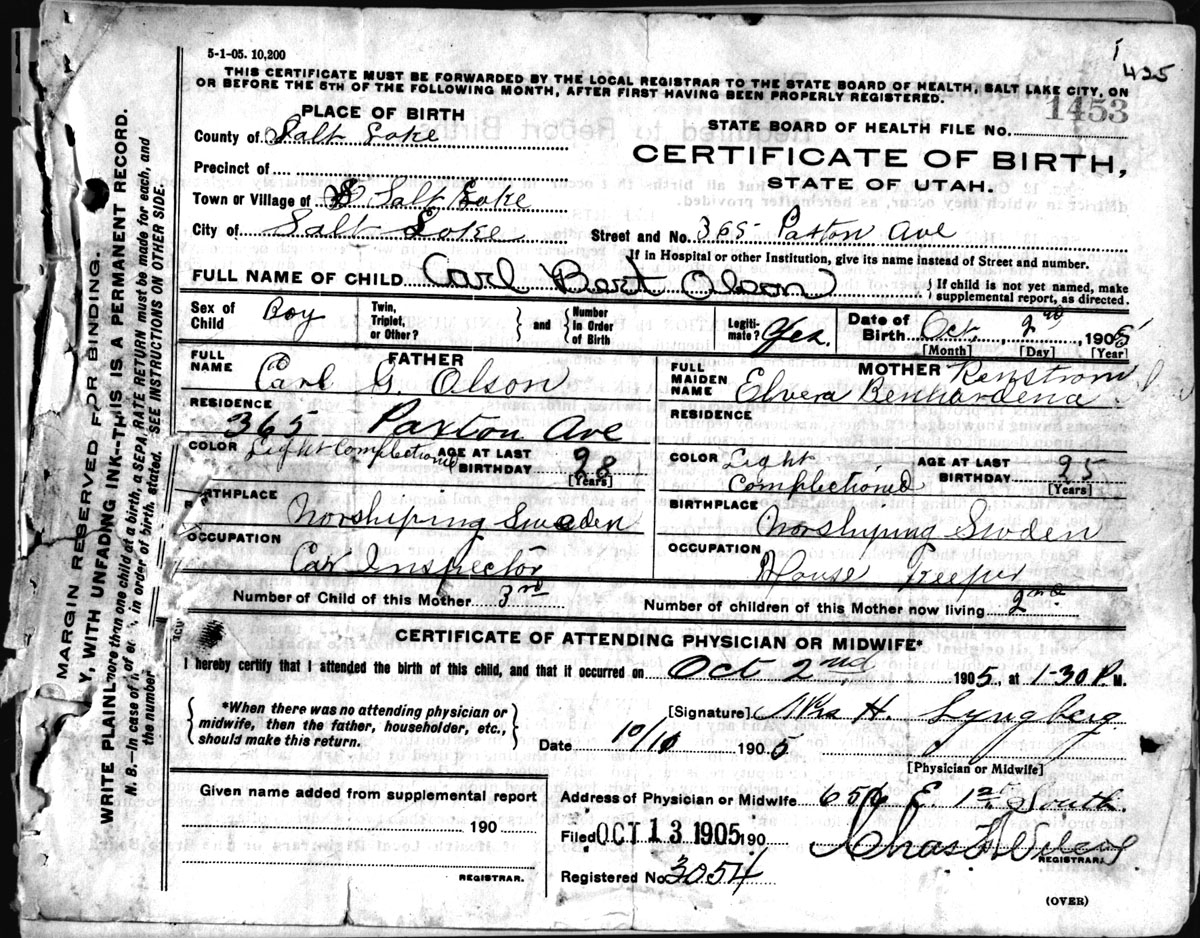 5-1-05. 10,200
1
425
THIS CERTIFICATE MUST BE FORWARDED BY THE LOCAL REGISTRAR TO THE STATE BOARD OF HEALTH, SALT LAKE CITY, ON
OR BEFORE THE 5TH OF THE FOLLOWING MONTH, AFTER FIRST HAVING BEEN PROPERLY REGISTERED.
PLACE OF BIRTH
County of Salt Lake
Precinct of
Town or Village of Salt Lake
City of Salt Lake
STATE BOARD OF HEALTH FILE NO. 1453
CERTIFICATE OF BIRTH,
STATE OF UTAH.
Street and No. 365 Paxton Ave
If in Hospital or other Institution, give its name instead of Street and number.
FULL NAME OF CHILD Carl Bert Olson
If child is not yet named, make
supplemental report, as directed.
Sex of Child Boy
Twin, Triplet, or Other?
and Number In Order of Birth
Legiti-mate? Yes.
Date of Birth Oct, 2nd, 1905
[Month] [Day] [Year]
FATHER
FULL NAME Carl G. Olson
RESIDENCE
365 Paxton Ave
COLOR Light Complectioned
AGE AT LAST BIRTHDAY 28
[Years]
BIRTHPLACE
Norshiping Sweden
OCCUPATION
Car Inspector
MOTHER
FULL MAIDEN NAME Elvera Benhardena Renstrom
RESIDENCE
COLOR Light Complectioned
AGE AT LAST BIRTHDAY 25
[Years]
BIRTHPLACE
Norshiping Sweden
OCCUPATION
House Keeper
Number of Child of this Mother 3rd
Number of children of this Mother now living 2nd
CERTIFICATE OF ATTENDING PHYSICIAN OR MIDWIFE*
I hereby certify that I attended the birth of this child, and that it occurred on Oct 2nd 1905, at 1-30 P. M.
*When there was no attending physician or
midwife, then the father, householder, etc.,
should make this return.
[Signature] Mrs H. Lyngberg
Date 10/10 1905
[Physician or Midwife]
Given name added from supplemental report
190
REGISTRAR.
Address of Physician or Midwife 656 E. 1st South
Filed OCT 13 1905 190
REGISTRAR.
Registered No. 3054
(OVER)
MARGIN RESERVED FOR BINDING.
WRITE PLAINLY, WITH UNFADING INK--THIS IS A PERMANENT RECORD.
N. B.--In case of more than one child at a birth, a SEPARATE RETURN must be made for each, and
the number in order of birth, stated. SEE INSTRUCTIONS ON OTHER SIDE.